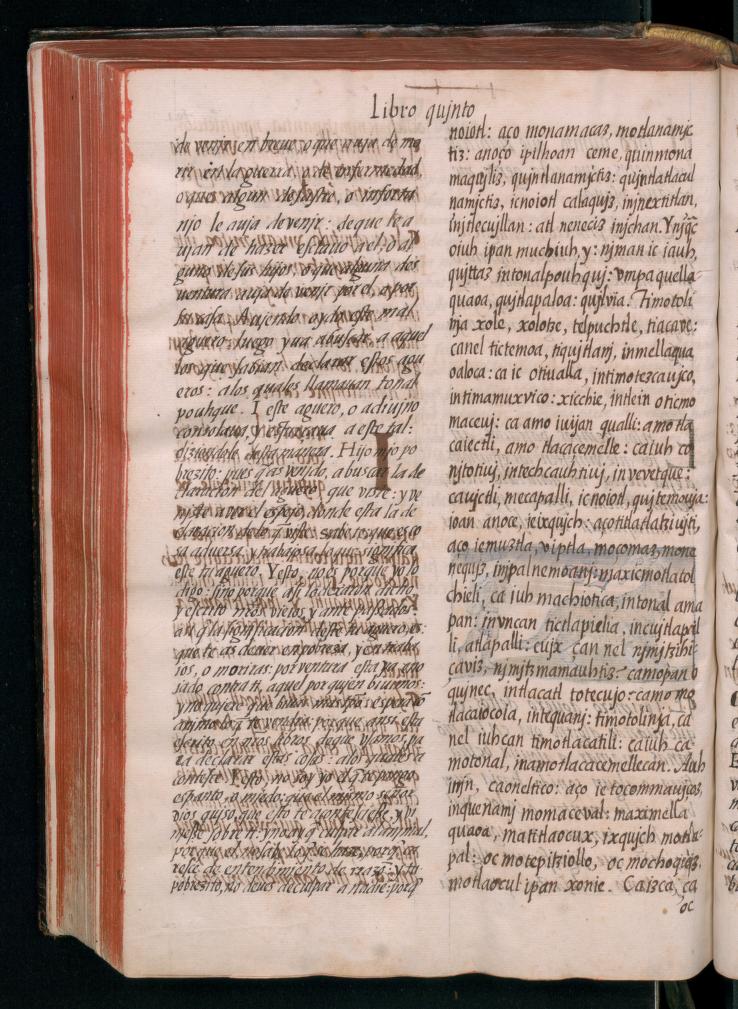 Libro qujnto
de venjr, en breue, o que auja de mo
rir en la guerra, o de enfermedad,
o que algun desastre, o infortu
njo le auja de venjr: de que le a
ujan de hazer esclauo a el, o al
guno de sus hijos, o que alguna des
ventura auja de venjr por el, o por
su casa. Aujendo oydo este mal
aguero: luego yua a buscar, a aquel
los que sabian declarar estos agu
eros: a los quales llamauan tonal
pouhque. I este aguero, o adiujno
consolaua, y esforçaua a este tal:
diziendole desta manera. Hijo mjo po
brezito: pues q̃ as venjdo, a buscar la de
claracion del aguero que viste: y ve
njste a ver el espejo, donde esta la de
claracion de lo q̃ viste. sabete que es co
sa aduersa, y trabajosa, lo que significa
este tu aguero. Y esto, no es porque yo lo
digo: sino porque asi lo dexaron dicho,
y escrito nros viejos, y ante pasados:
an q̃ la significacion deste tu aguero, es:
que te as de ver en pobreza, y en traba
ios, o moriras: por ventura esta ya eno
jado contra ti, aquel por qujen biujmos:
y no qujere que bivas mas tpo: espera cõ
anjmo lo q̃ te vendra: porque ansi esta
escrito en nros libros, de que vsamos pa
ra declarar estas cosas: a los quales a
contesce. Y esto, no soy yo el q̃ te pongo
espanto, o mjedo: que el mismo señor
dios quiso, que esto te aconteciese, y vi
njese sobre ti: y no ay q̃ culpar al anjmal,
porque el no sabe lo q̃ se haze, porq̃ ca
resce de entendimiento, de razõ: y tu
pobrezito, no deues de culpar a nadie: porq̃
noiotl: aço monamacaz, motlanamjc
tiz: anoço ipilhoan ceme, quinmona
maqujliz, qujntlanamjctiz: qujntlatlacul
namjctiz, icnoiotl calaqujz, injnextitlan,
injtlecujllan: atl nenecíz injchan. Ynjq̃c
oiuh ipan muchiuh, y: njman ic iauh,
qujttaz intonalpouhquj: vmpa quella
quaoa, qujtlapaloa: qujlvia. Timotoli
nja xole, xolotze, telpuchtle, tiacave:
canel tictemoa, tiqujtlanj, inmellaqua
oaloca: ca ic otiualla, intimotezcaujco,
intimamuxvico: xicchie, intlein oticmo
maceuj: ca amo iuijan qualli: amo tla
caiectli, amo tlacacemelle: ca iuh co
njtotiuj, intechcauhtiuj, in vevetque:
caujctli, mecapalli, icnoiotl, qujtemouja:
ioan anoce, ieixqujch: açotitlatlatziujti,
aço iemuztla, viptla, mocomaz, mone
nequjz, injpalnemoanj: maxicmotlatol
chieli, ca iuh machiotica, intonal ama
pan: invncan tictlapielia, incujtlapil
li, atlapalli: cujx can nel njmjtzihi
çaviz, njmjtzmamauhtiz: camopan o
qujnec, intlacatl totecujo: camo mo
tlacaiocola, intequanj: timotolinja, ca
nel iuhcan timotlacatili: caiuh ca
motonal, inamotlacacemellecan. Auh
injn, caoneltico: aço ietocommaujcos,
inquenamj momaceval: maximella
quaoa, matitlaocux, ixqujch motla
pal: oc motepitziollo, oc mochoqujz,
motlaocul ipan xonie. Caizca, ca
oc